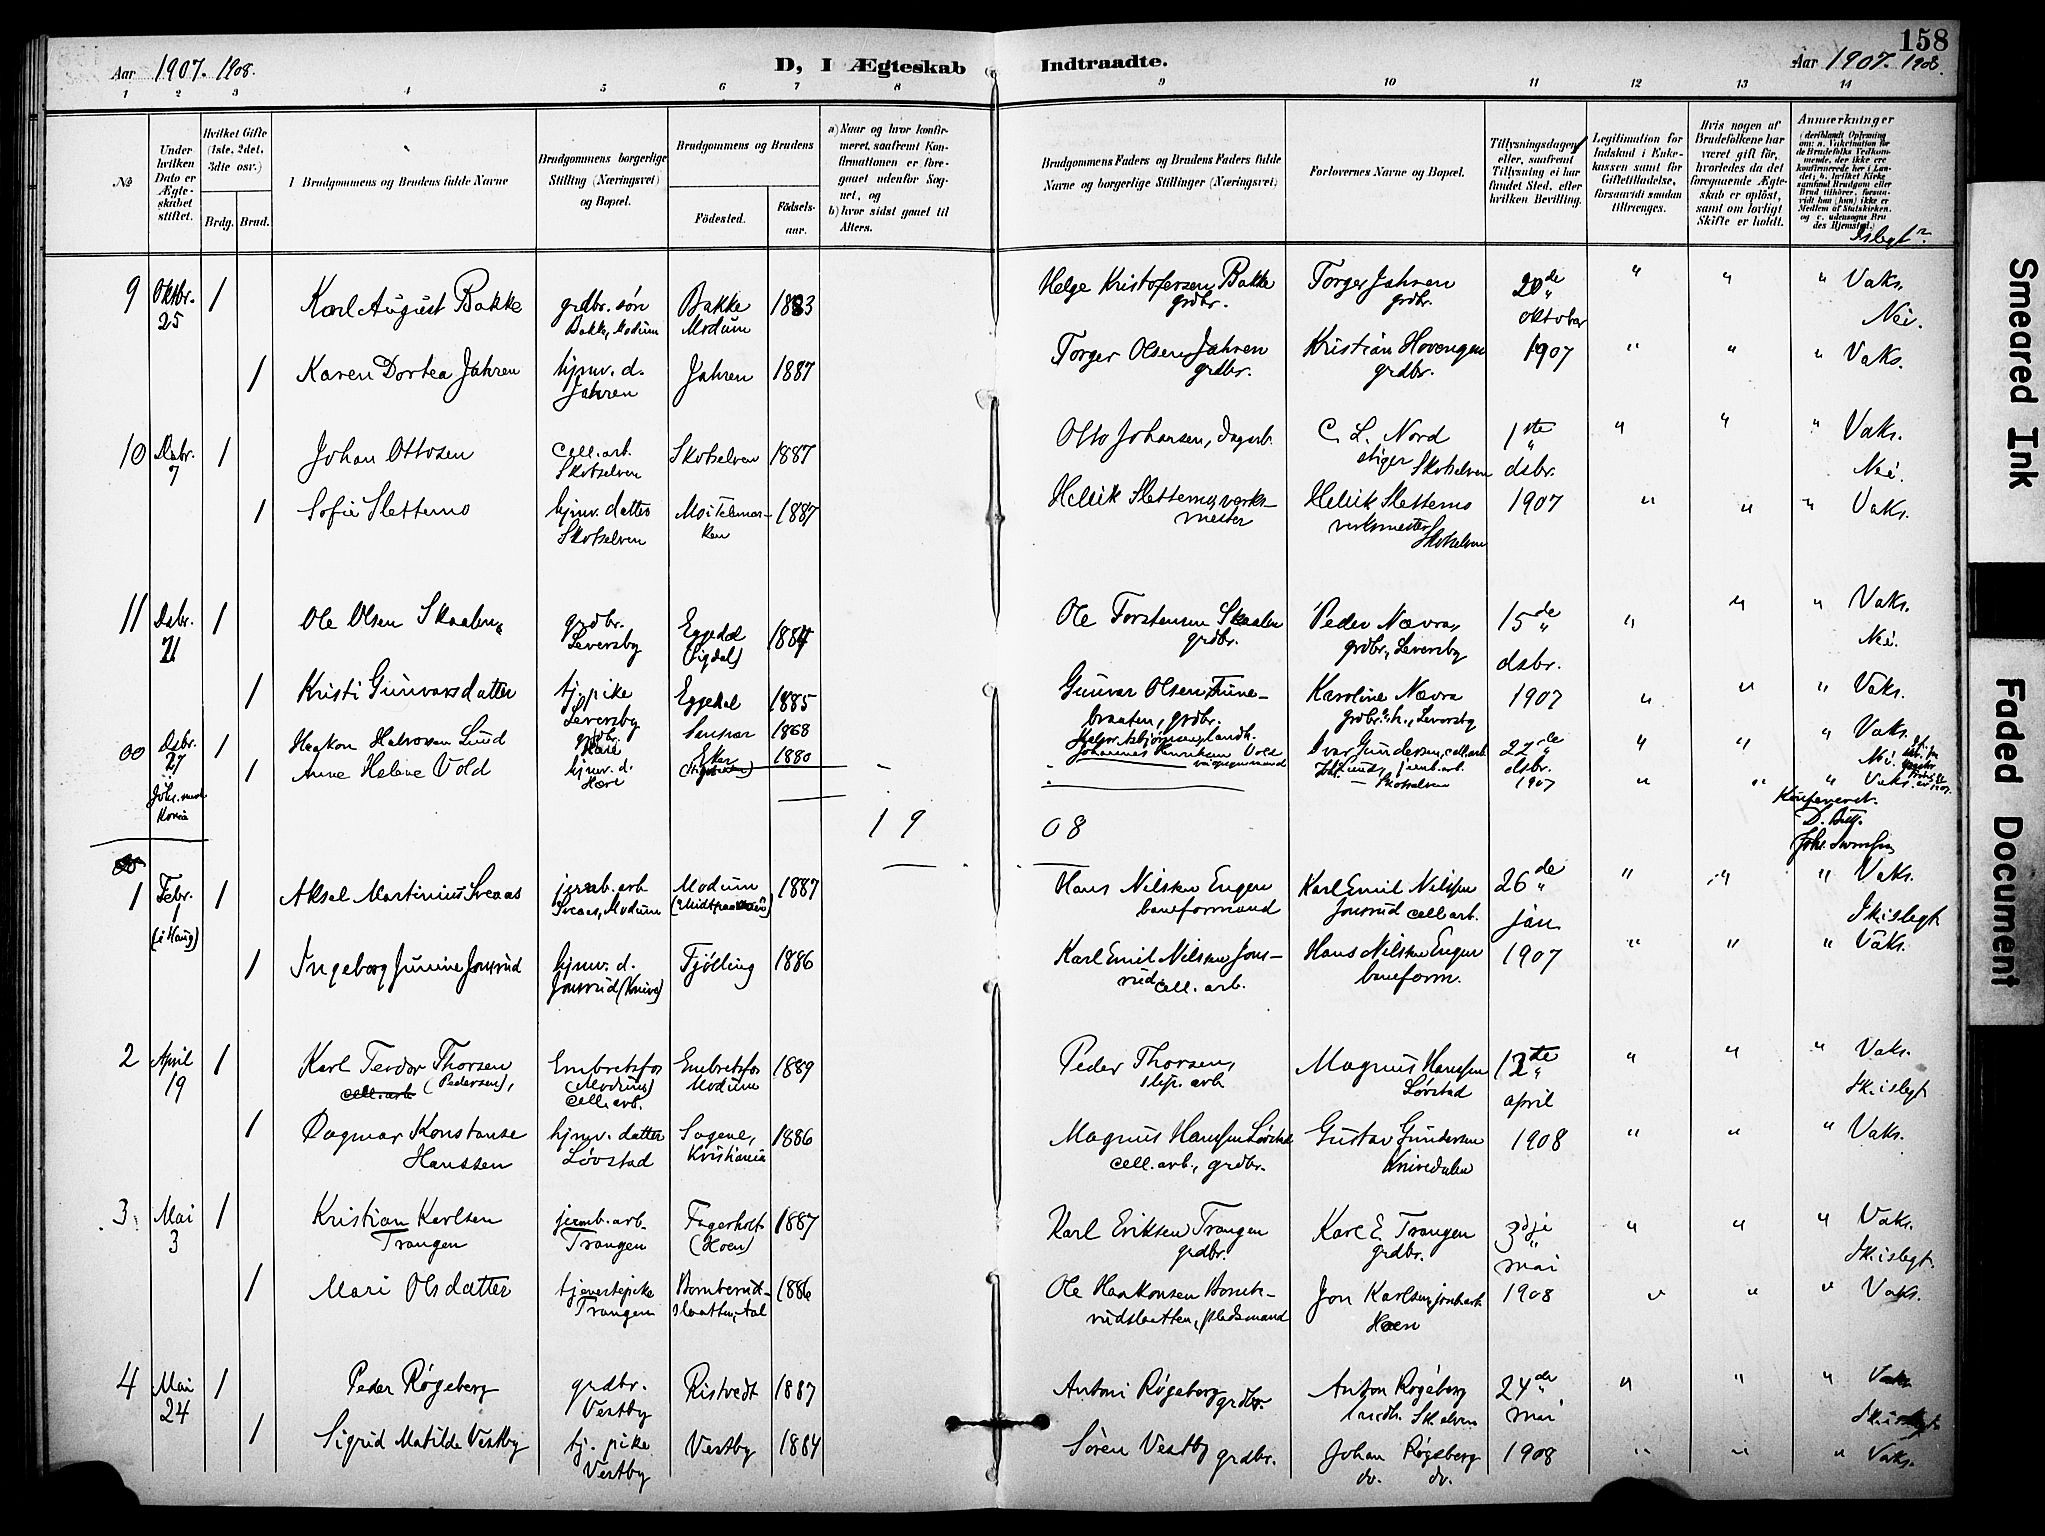 158
Aar 1907. 1908.
D, I Ægteskab Indtraadte.
Aar 1907. 1908.
1 2 3 4 5 6 7 8 9 10 11 12 13 14
No
Under hvilken Dato er Ægteskabet stiftet.
Hvilket Gifte (1ste, 2det, 3die osv.)
Brdg. Brud.
I Brudgommens og Brudens fulde Navne
Brudgommens borgerlige Stilling (Næringsvei) og Bopæl.
Brudgommens og Brudens
Födested.
Födselsaar.
a) Naar og hvor konfirmeret, saafremt Konfirmationen er foregaaet udenfor Sognet, og
b) hvor sidst gaaet til Alters.
Brudgommens Faders og Brudens Faders fulde Navne og borgerlige Stillinger (Næringsvei)
Forlovernes Navne og Bopæl.
Tillysningsdagen, eller, saafremt Tillysning ei har fundet Sted, efter hvilken Bevilling.
Legitimation for Indskud i Enkekassen samt for Giftetilladelse, forsaavidt saadan tiltrænges.
Hvis nogen af Brudefolkene har været gift før, hvorledes da det foregaaende Ægteskab er oplöst, samt om lovligt Skifte er holdt.
Anmærkninger
9 Oktbr. 25 1 Karl August Bakke grdbr. søn Bakke, Modum Bakke Modum 1883 Helge Kristofersen Bakke grdbr. Torger Jahren grdbr. 20de oktober " " " Vaks. Nei.
1 Karen Dortea Jahren hjmv. d. Jahren Jahren 1887 Torger Olsen Jahren grdbr. Kristian Hovengen grdbr. 1907 " " " Vaks.
10 Dsbr. 7 1 Johan Ottosen cell. arb. Skotselven Skotselven 1887 Otto Johansen, dagarb. C. L. Nord stiger Skotselven 1ste dsbr. " " " Vaks. Nei.
1 Sofie Sletterno hjmv. datter Skotselven 1887 Helvik Sletterno, verksmester Helvik Sletterno verksmester Skotselven 1907 " " " Vaks.
11 Dsbr. 21 1 Ole Olsen Skaalen grdbr. Leversby Eggedal (Sigdal) 1884 Ole Torstensen Skaalen grdbr. Peder Nævra, grdbr., Leversby 15de dsbr. " " " Vaks. Nei.
1 Kristi Gunvarsdatter tj. pike Leversby Eggedal 1885 Gunvar Olsen Tunebraaten, grdbr. Karoline Nævra grdbr. h., Leversby 1907 " " " Vaks.
00 Dsbr. 27 1 Haakon Halvorsen Lund 1868 22de dsbr. " " " Vaks.
1 Anne Helene Vold hjmv. d. Eker 1880 Johannes Henriksen Vold Skotselven 1907 " " " Vaks.
Konfereret.
19 08
1 Febr. 1 (i Haug) 1 Aksel Martinius Sveaas jernb. arb. Sveaas, Modum Modum 1887 Hans Nilsen Engen baneformand Karl Emil Nilsen Jonsrud cell. arb. 26de jan. " " " Vaks. Sk. islegt
1 Ingeborg Junine Jonsrud hjmv. d. Jonsrud (Knive) Tjølling 1886 Karl Emil Nilsen Jonsrud cell. arb. Hans Nilsen Engen baneform. 1907 " " " Vaks.
2 April 19 1 Karl Teodor Thorsen (Pedersen), cell. arb. Embretsfos (Modum) cell. arb. Embretsfos Modum 1889 Peder Thorsen, slip. arb. Magnus Hanssen Løvstad 12te april " " " Vaks. Sk. islegt
1 Dagmar Konstanse Hanssen hjmv. datter Løvstad Sagene, Kristiania 1886 Magnus Hanssen Løvstad cell. arb., grdbr. Gustav Gundersen Knivedalen 1908 " " " Vaks.
3 Mai 3 1 Kristian Karlsen Trangen jernb. arb. Trangen Fagerholt (Hoen) 1887 Karl Eriksen Trangen grdbr. Karl E. Trangen grdbr. 3dje mai " " " Vaks. Sk. islegt.
1 Mari Olsdatter tjenestepike Trangen 1886 Ole Haakonsen plodsmand Jon Karlsen, jernb. arb. Hoen 1908 " " " Vaks.
4 Mai 24 1 Peder Røgeberg grdbr. Vestby Ristvedt 1887 Antoni Røgeberg grdbr. Anton Røgeberg landh. Sk. elven 24de mai " " " Vaks. Sk. islegt
1 Sigrid Matilde Vestby tj. pike Vestby Vestby 1884 Søren Vestby grdbr. Johan Røgeberg do. do. 1908 " " " Vaks.
Smeared Ink
Faded Document